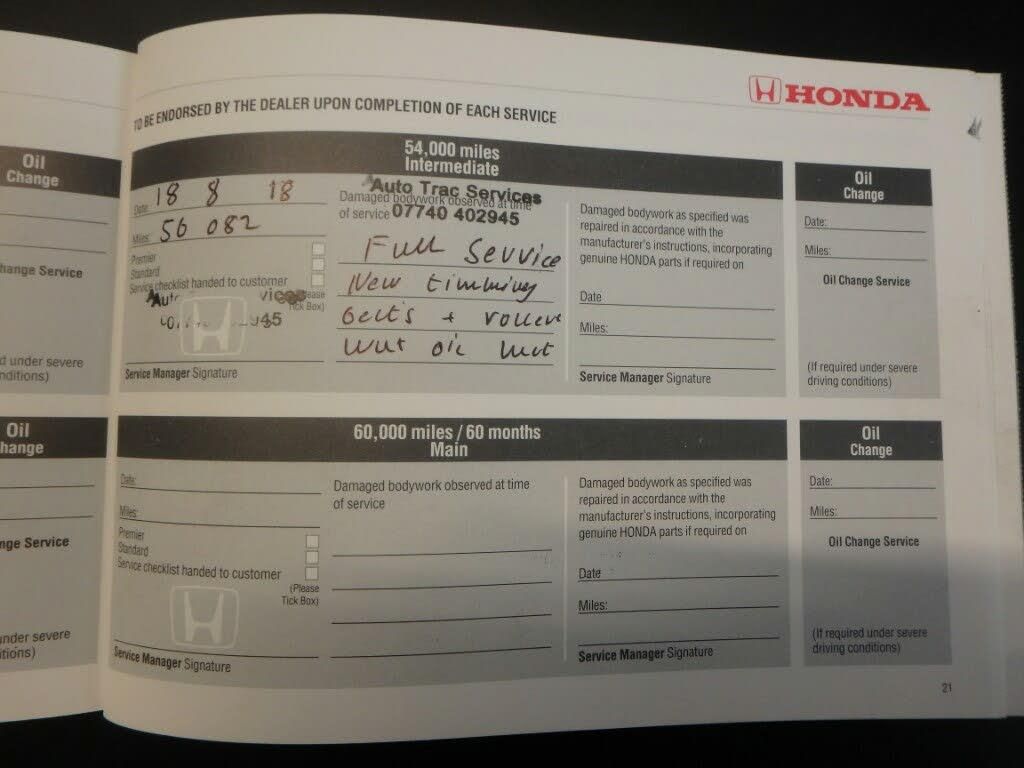 HONDA
TO BE ENDORSED BY THE DEALER UPON COMPLETION OF EACH SERVICE
Oil
Change
hange Service
d under severe
nditions)
54,000 miles
Intermediate
Date: 18 8 18
Miles: 56 082
Premier
Standard
Service checklist handed to customer
(Please
Tick Box)
Service Manager Signature
Auto Trac Services
Damaged bodywork observed at time
of service 07740 402945
Full Service
New timming
belts + rollers
oil
Damaged bodywork as specified was
repaired in accordance with the
manufacturer's instructions, incorporating
genuine HONDA parts if required on
Date
Miles:
Service Manager Signature
Oil
Change
Date:
Miles:
Oil Change Service
(If required under severe
driving conditions)
Oil
hange
nge Service
under severe
itions)
60,000 miles / 60 months
Main
Date:
Miles:
Premier
Standard
Service checklist handed to customer
(Please
Tick Box)
Service Manager Signature
Damaged bodywork observed at time
of service
Damaged bodywork as specified was
repaired in accordance with the
manufacturer's instructions, incorporating
genuine HONDA parts if required on
Date
Miles:
Service Manager Signature
Oil
Change
Date:
Miles:
Oil Change Service
(If required under severe
driving conditions)
21